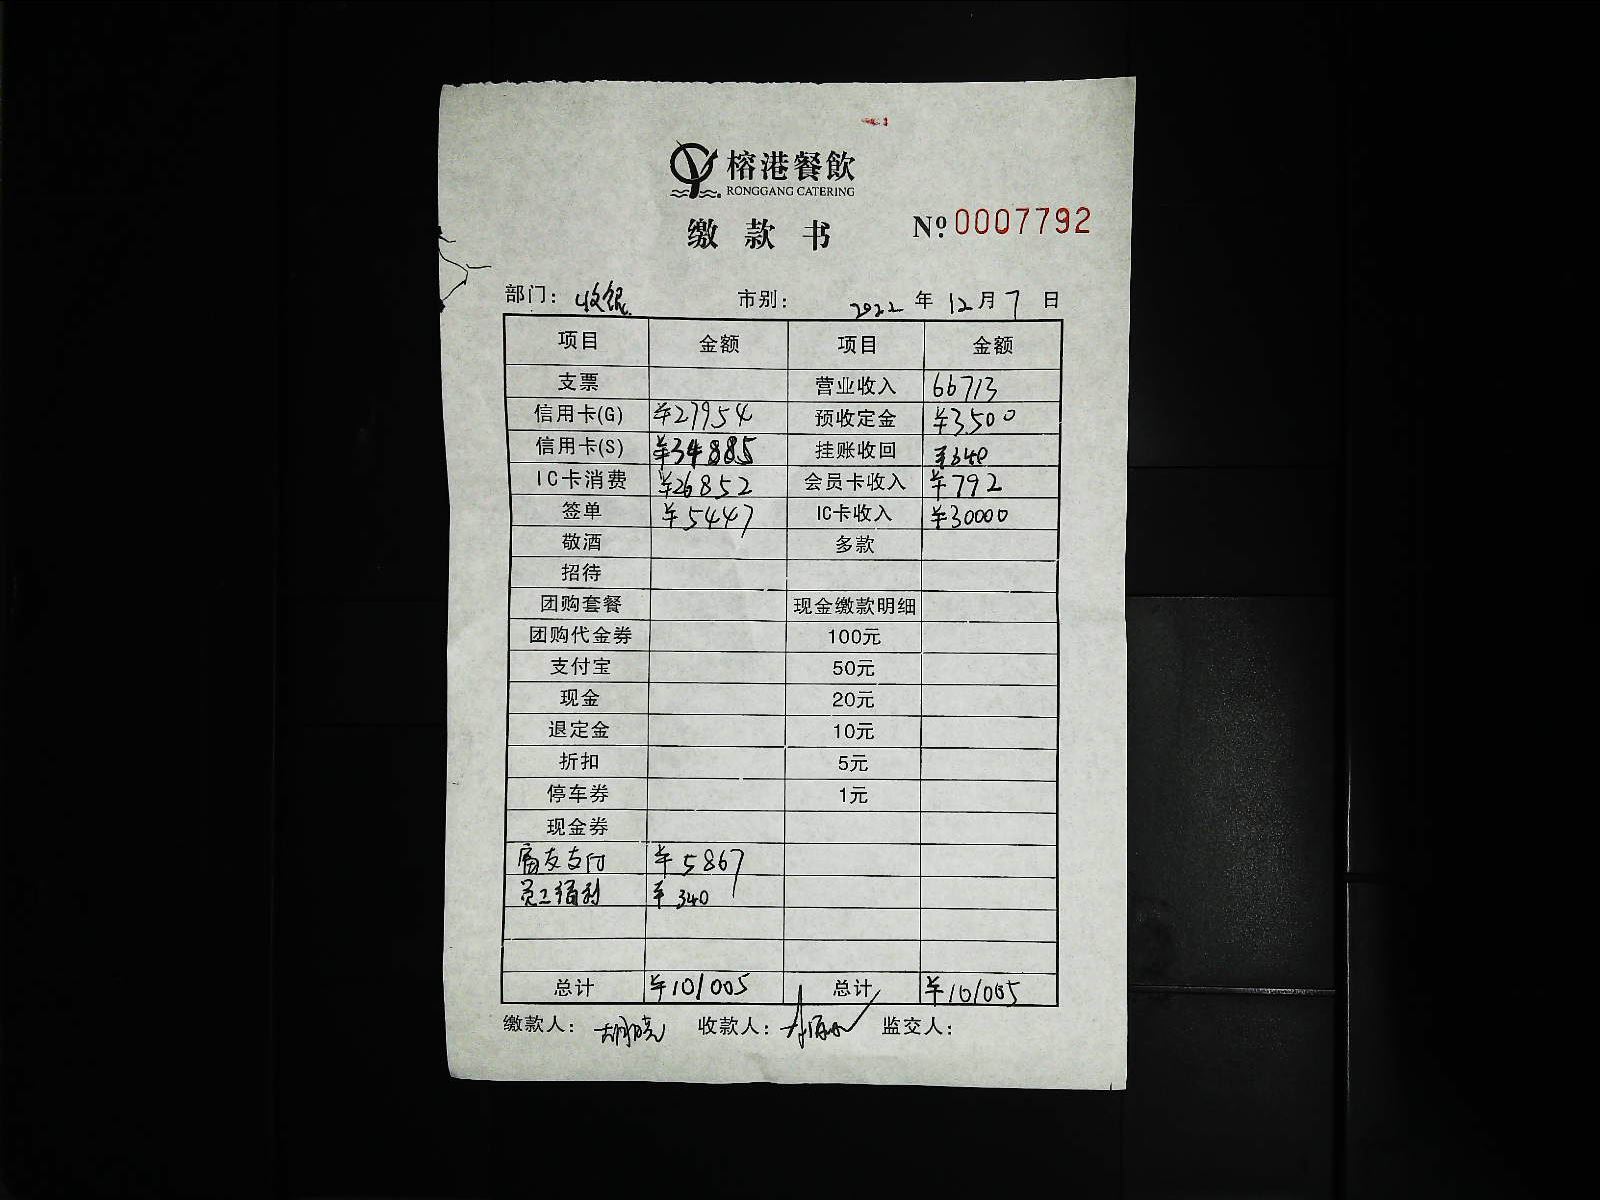 榕港餐飲
RONGGANG CATERING
缴款书 № 0007792
部门：收银 市别： 2022 年 12 月 7 日
项目 金额 项目 金额
支票 营业收入 66713
信用卡(G) ¥27954 预收定金 ¥3500
信用卡(S) ¥34885 挂账收回
IC卡消费 ¥26852 会员卡收入 ¥792
签单 ¥5447 IC卡收入 ¥30000
敬酒 多款
招待
团购套餐 现金缴款明细
团购代金券 100元
支付宝 50元
现金 20元
退定金 10元
折扣 5元
停车券 1元
现金券
富友支付 ¥5867
员工福利 ¥340
总计 ¥101005 总计 ¥101005
缴款人：胡晓 收款人： 监交人：